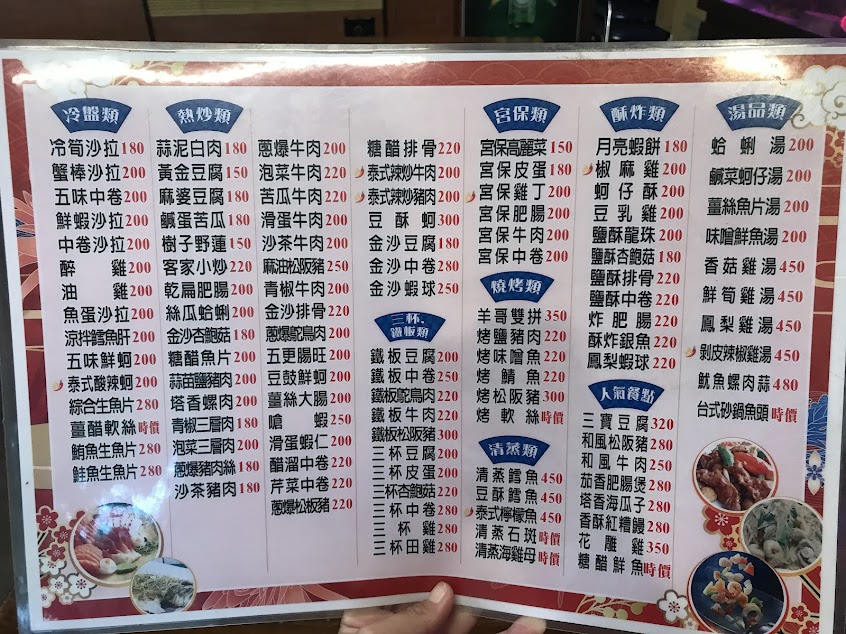 冷盤類
冷筍沙拉180
蟹棒沙拉200
五味中卷200
鮮蝦沙拉200
中卷沙拉200
醉雞200
油雞200
魚蛋沙拉200
涼拌鱈魚肝200
五味鮮蚵200
泰式酸辣蚵200
綜合生魚片280
薑醋軟絲時價
鮪魚生魚片280
鮭魚生魚片280
熱炒類
蒜泥白肉180
黃金豆腐150
麻婆豆腐180
鹹蛋苦瓜180
樹子野蓮150
客家小炒220
乾扁肥腸200
絲瓜蛤蜊200
金沙杏鮑菇180
糖醋魚片200
蒜苗鹽豬肉200
塔香螺肉200
青椒三層肉180
泡菜三層肉200
蔥爆豬肉絲180
沙茶豬肉180
蔥爆牛肉200
泡菜牛肉220
苦瓜牛肉220
滑蛋牛肉200
沙茶牛肉200
麻油松阪豬250
青椒牛肉200
金沙排骨220
蔥爆鴕鳥肉200
五更腸旺200
豆鼓鮮蚵200
薑絲大腸200
嗆蝦250
滑蛋蝦仁200
醋溜中卷220
芹菜中卷220
蔥爆松板豬220
糖醋排骨220
泰式辣炒牛肉200
泰式辣炒豬肉200
豆酥蚵300
金沙豆腐180
金沙中卷280
金沙蝦球250
三杯、
鐵板類
鐵板豆腐200
鐵板中卷250
鐵板鴕鳥肉220
鐵板牛肉220
鐵板松阪豬300
三杯豆腐200
三杯皮蛋200
三杯杏鮑菇220
三杯中卷280
三杯雞280
三杯田雞280
宮保類
宮保高麗菜150
宮保皮蛋180
宮保雞丁200
宮保肥腸200
宮保牛肉200
宮保中卷200
燒烤類
羊哥雙拼350
烤鹽豬肉220
烤味噌魚220
烤鯖魚220
烤松阪豬300
烤軟絲時價
清蒸類
清蒸鱈魚450
豆酥鱈魚450
泰式檸檬魚450
清蒸石斑時價
清蒸海雞母時價
酥炸類
月亮蝦餅180
椒麻雞200
蚵仔酥200
豆乳雞200
鹽酥龍珠200
鹽酥杏鮑菇180
鹽酥排骨220
鹽酥中卷220
炸肥腸220
酥炸銀魚220
鳳梨蝦球220
人氣餐點
三寶豆腐320
和風松阪豬280
和風牛肉250
茄香肥腸煲280
塔香海瓜子280
香酥紅糟鰻280
花雕雞350
糖醋鮮魚時價
湯品類
蛤蜊湯200
鹹菜蚵仔湯200
薑絲魚片湯200
味噌鮮魚湯200
香菇雞湯450
鮮筍雞湯450
鳳梨雞湯450
剝皮辣椒雞湯450
魷魚螺肉蒜480
台式砂鍋魚頭時價